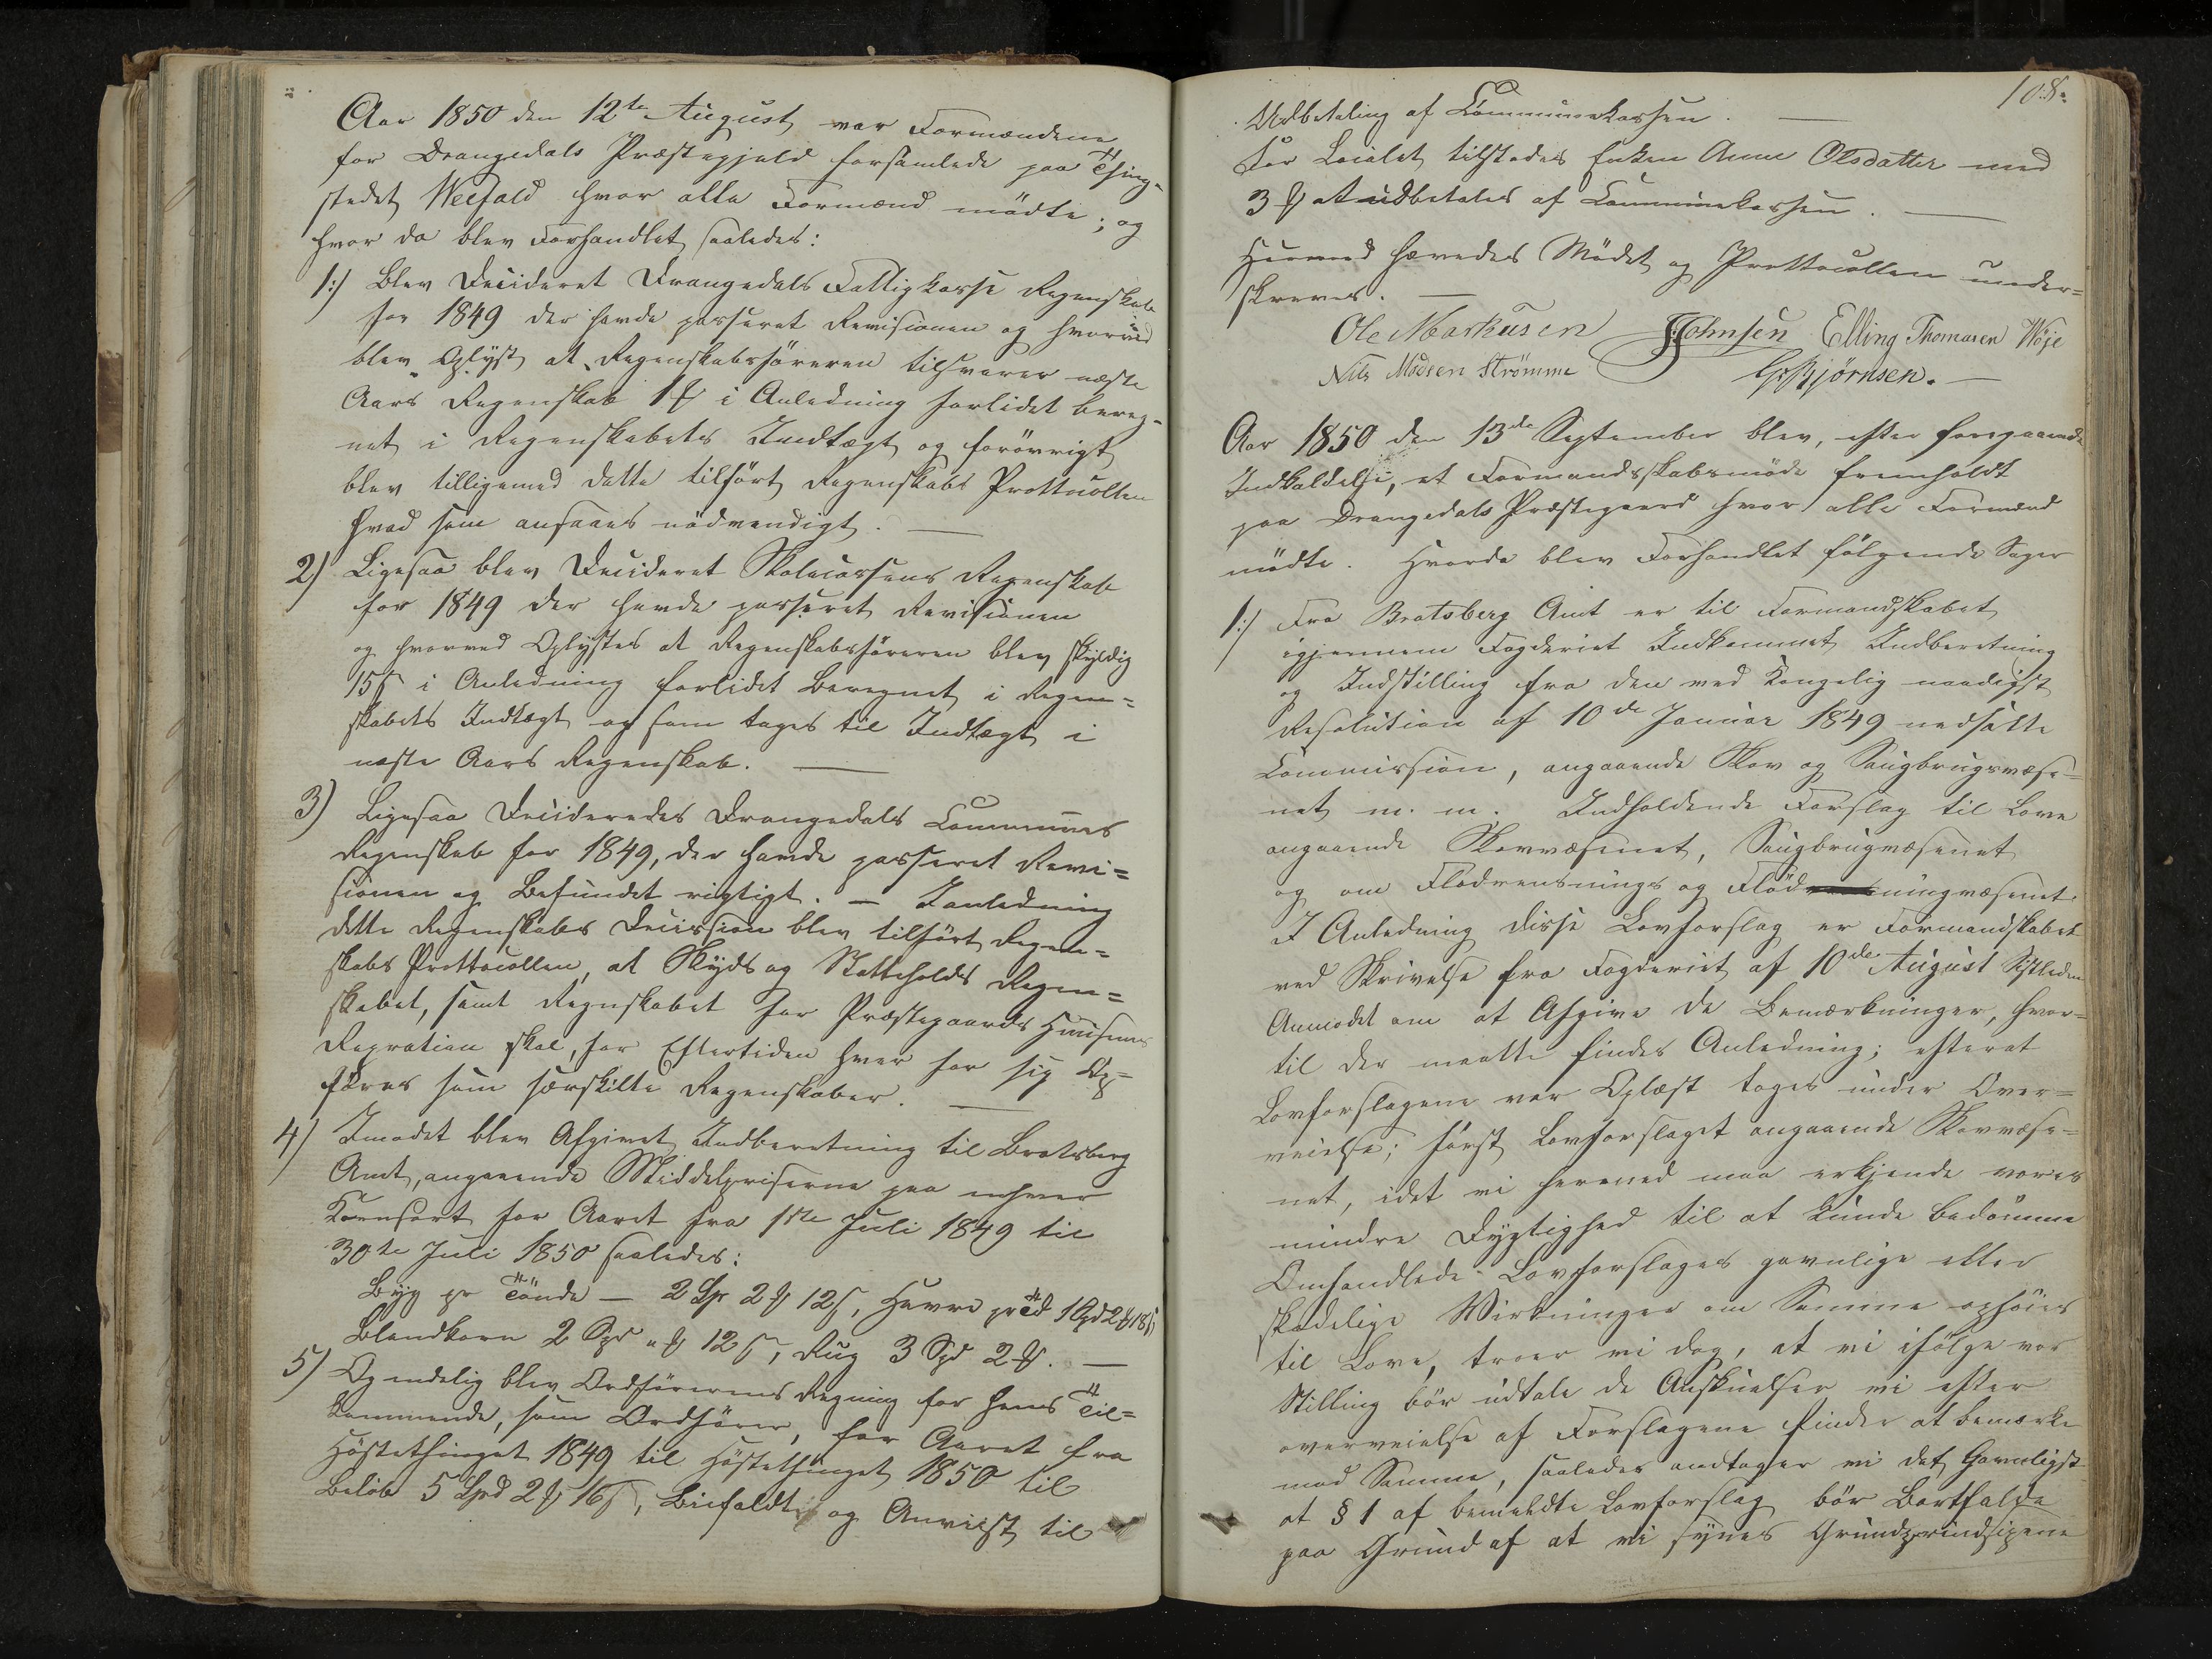 Aar 1850 den 12te August var Formændene
for Drangedals Præstegjeld forsamlede paa Thing-
stedet Weefald hvor alle Formænd mödte; og
hvor da blev Forhandlet saaledes:
1:) Blev Decideret Drangedals Fattigkasse Regenskab
for 1849 der havde passeret Revisionen og hvorved
blev Oplyst at Regenskabsföreren tilsvarer næste
Aars Regenskab 1 ₰ i Anledning forlidet bereg-
net i Regenskabets Indtægt og forövrigt
blev tilligemed dette tilfört Regenskabs Prottocollen
hvad som ansaaes nödvendigt. —
2) Ligesaa blev Decideret Skolecassens Regenskab
for 1849 der havde passeret Revisionen
og hvorved Oplystes at Regenskabsföreren blev skyldig
15 ß i Anledning forlidet Beregnet i Regen=
skabets Indtægt og som tages til Indtægt i
næste Aars Regenskab. —
3) Ligesaa Decideredes Drangedals Communes
Regenskab for 1849, der havde passeret Revi=
sionen og Befundet rigtigt. — Ianledning
dette Regenskabs Decission blev tilfört Regen=
skabs Prottocollen, at Skyds og Skatteholds Regen=
skabet, samt Regnskabet for Præstegaards Huusenes
Repration skal, for Eftertiden hver for sig Op=
föres som særskilte Regenskaber. —
4) Imodet blev Afgivet Indberetning til Bratsberg
Amt, angaaende Middelpriserne paa enhver
Kornsort for Aaret fra 1ste Juli 1849 til
30te Juli 1850 saaledes:
Byg pr Tönde — 2 Sp 2 ₰ 12 ß, Havre pr Td 1 Spd 2 ₰ 18 ß
Blandkorn 2 Spd " ₰ 12 ß, Rug 3 Spd 2 ₰. —
5) Og endelig blev Ordförerens Regning for hans Til=
kommende, som Ordförer, for Aaret fra
Höstethinget 1849 til Höstethinget 1850 til
Belöb 5 Spd 2 ₰ 16 ß, Biefaldt og Anviist til
108.
Udbetaling af Communekassen. —
For Localet tilstodes Enken Anne Olsdatter med
3 ₰ at udbetales af Communekassen. —
Hermed hævedes Mödet og Prottocollen under=
skreves. —
Ole Markusen JJohnsen Elling Thomasen Wöje
Nils Madsen Strömme GBjørnsen. —
Aar 1850 den 13de September blev, efter foregaaende
Indkaldelse, et Formandsskabsmöde fremholdt
paa Drangedals Præstegaard hvor alle Formænd
mödte. Hvorda blev Forhandlet fölgende Sager
1:) Fra Bratsberg Amt er til Formandskabet
igjennem Fogderiet Indkommet Indberetning
og Indstilling fra den ved Kongelig naadigst
Resolution af 10de Januar 1849 nedsatte
Commission, angaaende Skov og Saugbrugsvæse=
net m. m. Indholdende Forslag til Love
angaaende Skovvæsenet, Saugbrugvæsenet
og om Flodrensnings og Flödningvæsenet.
I Anledning disse Lovforslag er Formandskabet
ved Skrivelse fra Fogderiet af 10de August Sistleden
Anmodet om at Afgive de Bemærkninger, hvor=
til der maatte findes Anledning; efterat
Lovforslagene var Oplæst tages under Over=
veielse; först Lovforslaget angaaende Skovvæse=
net, idet vi herved maa erkjende vores
mindre Dygtighed til at kunde bedömme
Omhandlede Lovforslages gavnlige eller
skadelige Wirkninger om Samme ophöies
til Love, troer vi dog, at vi ifölge vor
Stilling bör udtale de Anskuelser vi efter
overveielse af Forslagene finder at bemærke
mod Samme, saaledes andtager vi det Gavnligst
at § 1 af bemeldte Lovforslag bör Bortfalde
paa Grund af at vi synes Grundprindsipene